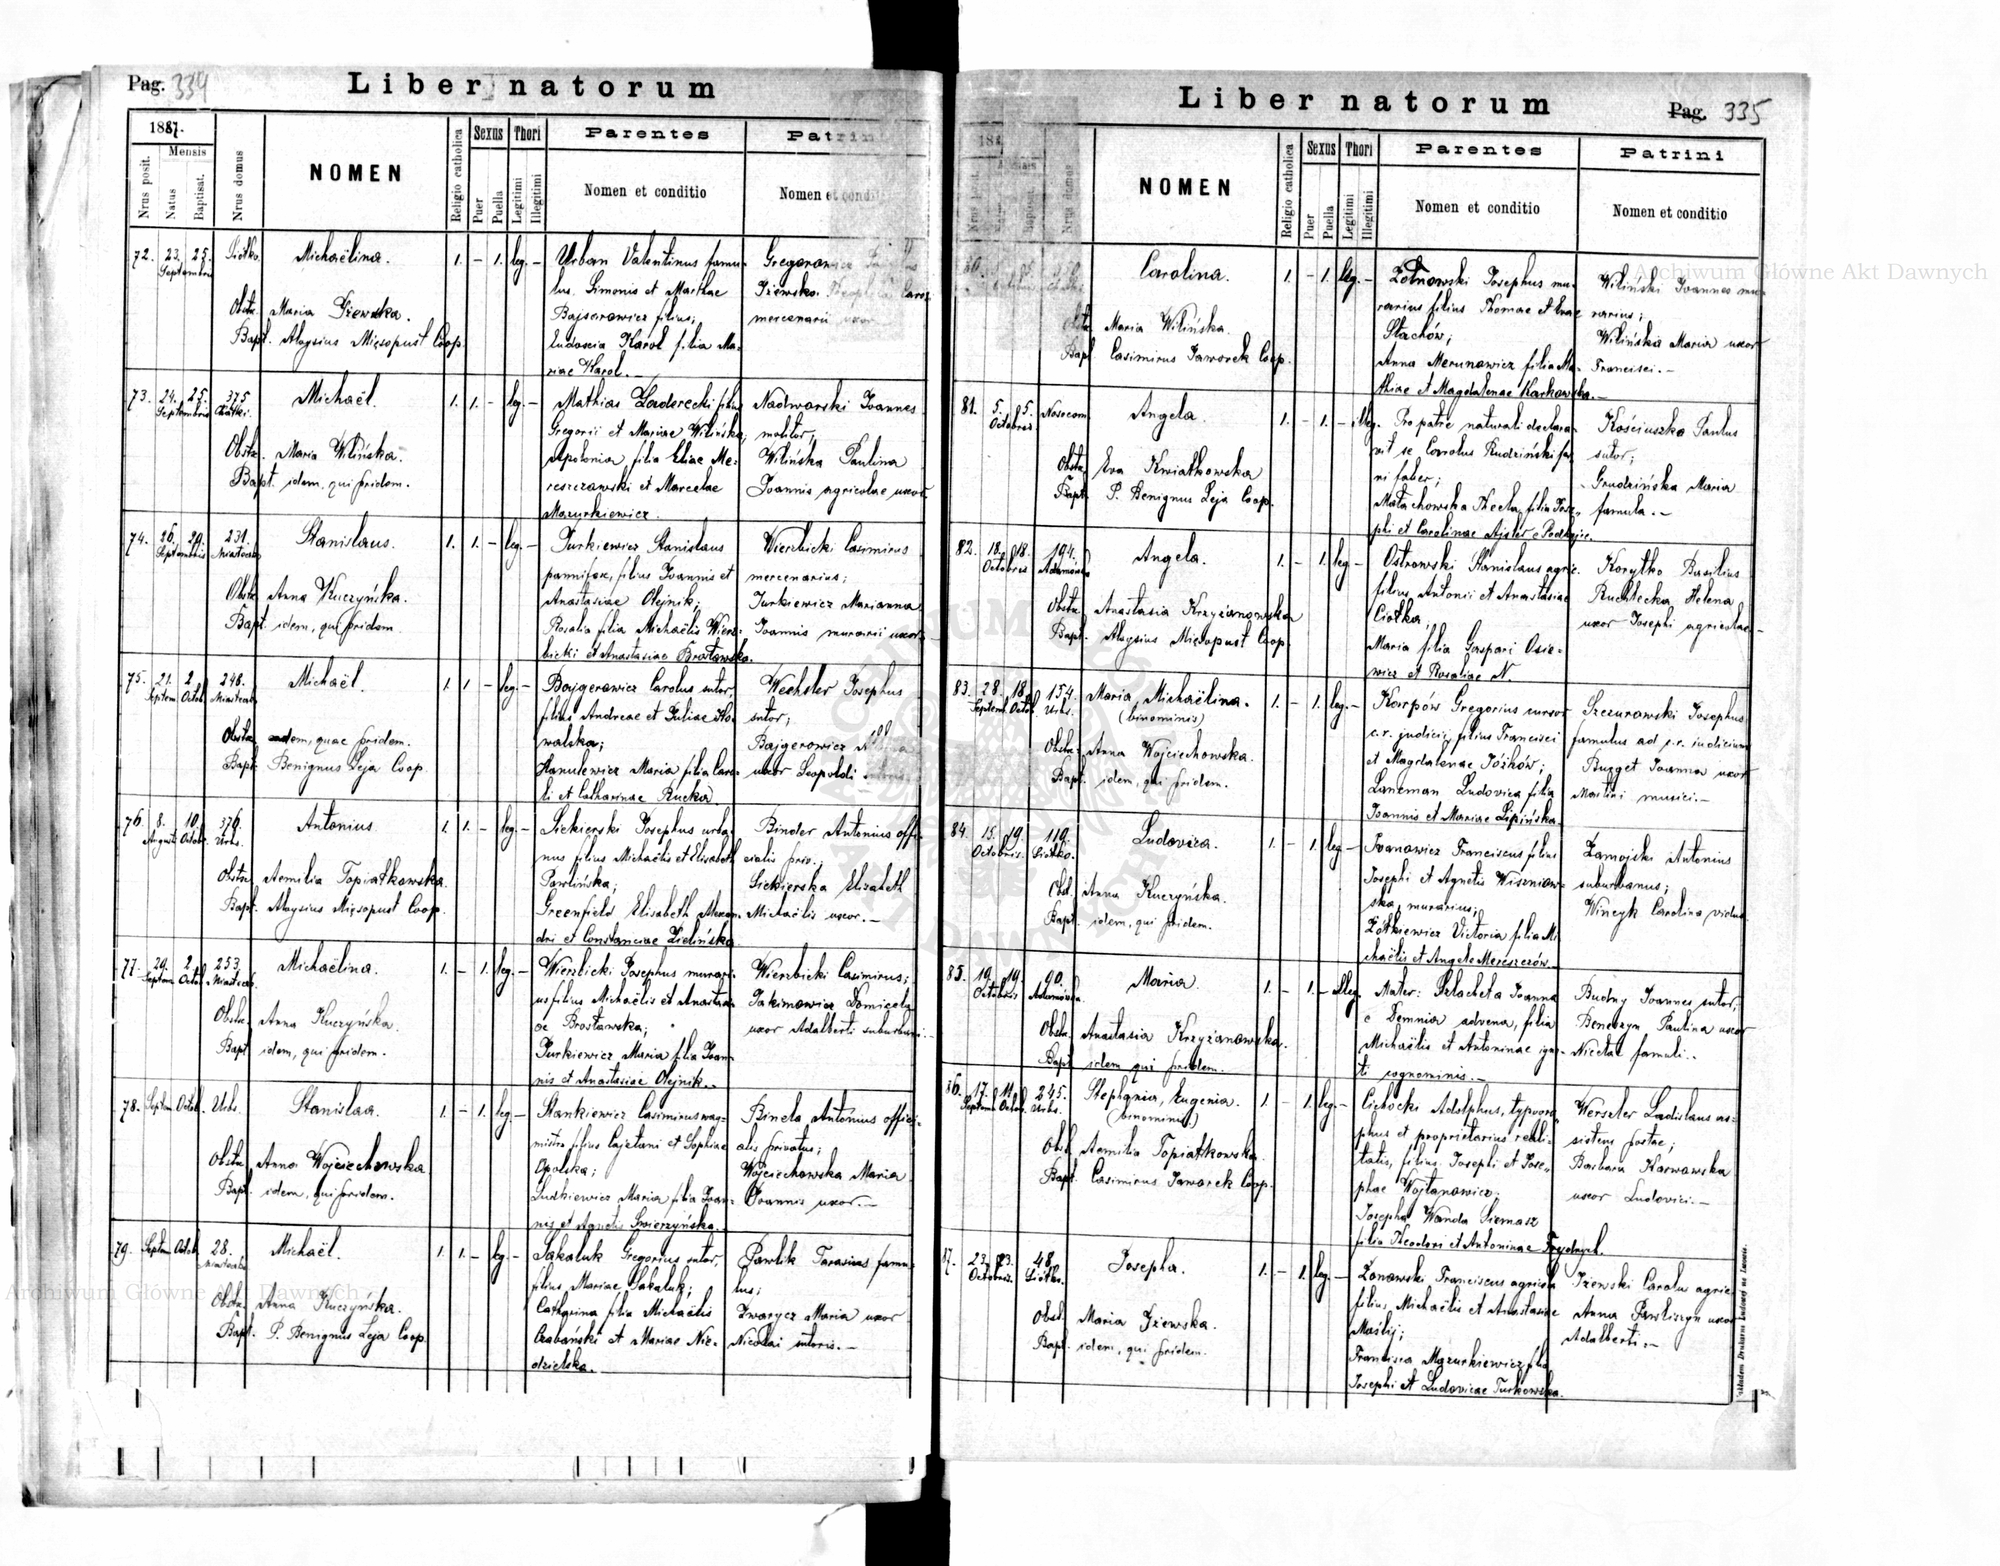 Pag. 334
Liber natorum
1887.
Nrus posit.
Mensis
Natus
Baptisat.
Nrus domus
NOMEN
Religio catholica
Sexus
Puer
Puella
Thori
Legitimi
Illegitimi
Parentes
Nomen et conditio
Patrini
Nomen et condi
72. 23. 25. Septembris Michaëlina. 1. - 1. leg. -
Obstr. Maria Iżewska.
Bapt. Aloysius Mięsopust Coop.
Urban Valentinus famu-
lus. Simonis et Marthae
Bajgerowicz filius;
Ludovica Karol filia Ma-
riae Karol. -
Iżewska
mercenarii uxor
73. 24. 25. Septembris 375 Michaël. 1. 1. - leg. -
Obstr. Maria Wilińska.
Bapt. idem, qui pridem.
Mathias Zaderecki filius
Gregorii et Mariae Wilińska;
Apolonia filia Eliae Me-
reszczowski et Marcelae
Mazurkiewicz.
Nadworski Joannes
molitor;
Wilińska Paulina
Joannis agricolae uxor.
74. 26. 29. Septembris 231. Stanislaus. 1. 1. - leg. -
Obstr. Anna Kuczyńska.
Bapt. idem, qui pridem.
Jurkiewicz Stanislaus
pannifex, filius Joannis et
Anastasiae Olejnik;
Rosalia filia Michaëlis Wierz-
bicki et Anastasiae Brosławska.
Wierzbicki Casimirus
mercenarius;
Jurkiewicz Marianna
Joannis murarii uxor.
75. 21. Septem. 2. Octob. 248. Michaël. 1. 1. - leg. -
Obstr. eadem, quae pridem.
Bapt. Benignus Leja Coop.
Bajgerowicz Carolus sutor,
filius Andreae et Juliae Ko-
walska;
Hanulewicz Maria filia Caro-
li et Catharinae Rucka.
Wechsler Josephus
sutor;
Bajgerowicz
uxor Leopoldi
76. 8. Augusti 10. Octob. 376. Urbs. Antonius. 1. 1. - leg. -
Obstr. Aemilia Topiatkowska.
Bapt. Aloysius Mięsopust Coop.
Siekierski Josephus urba-
nus filius Michaëlis et Elisabeth
Pawlińska;
Greenfield Elisabeth Alexan-
dri et Constanciae Zielińska.
Binder Antonius offi-
cialis priv.;
Siekierska Elisabeth
Michaëlis uxor. -
77. 29. Septem. 2. Octob. 253. Michaëlina. 1. - 1. leg. -
Obstr. Anna Kuczyńska.
Bapt. idem, qui pridem.
Wierzbicki Josephus murari-
us filius Michaëlis et Anastasi-
ae Brosławska;
Jurkiewicz Maria filia Joan-
nis et Anastasiae Olejnik. -
Wierzbicki Casimirus;
Jakimowicz Domicela
uxor Adalberti suburbani. -
78. Septem. Octob. Urbs. Stanislaa. 1. - 1. leg. -
Obstr. Anna Wojciechowska
Bapt. idem, qui pridem.
Stankiewicz Casimirus wag-
mistr filius Cajetani et Sophiae
Opolska;
Maria filia Joan-
nis et Agnetis Swierzyńska.
Antonius offici-
alis privatus;
Wojciechowska Maria
Joannis uxor. -
79. Septem. Octob. 28. Michaël. 1. 1. - leg. -
Obstr. Anna Kuczyńska.
Bapt. P. Benignus Leja Coop.
Sakaluk Gregorius sutor,
filius Mariae Sakaluk;
Catharina filia Michaëlis
Czabański et Mariae Nie-
dzielska.
Pawlik Tarasius famu-
lus;
Iwarycz Maria uxor
Nicolai sutoris. -
Liber natorum
Pag. 335
188
Nrus domus
NOMEN
Religio catholica
Sexus
Puer
Puella
Thori
Legitimi
Illegitimi
Parentes
Nomen et conditio
Patrini
Nomen et conditio
Carolina. 1. - 1. leg. -
Obstr. Maria Wilińska.
Bapt. Casimirus Jaworek Coop.
Josephus mu-
rarius filius Thomae et Evae
Stachów;
Anna Merunowicz filia Ma-
thiae et Magdalenae Karkowska. -
Wiliński Joannes mu-
rarius;
Wilińska Maria uxor
Francisci. -
81. 5. 5. Octobris Nosocom. Angela. 1. - 1. - illeg.
Obstr. Eva Kwiatkowska
Bapt. P. Benignus Leja Coop.
Pro patre naturali declara-
vit se Carolus Rudziński fer-
ri faber;
Małachowska Thecla, filia Jose-
phi et Carolinae
Kościuszko Paulus
sutor;
Grudzińska Maria
famula. -
82. 18. 18. Octobris 194. Adamówka Angela. 1. - 1. leg. -
Obstr. Anastasia Krzyżanowska
Bapt. Aloysius Mięsopust Coop.
Ostrowski Stanislaus agric.
filius, Antonii et Anastasiae
Ciotka;
Maria filia Gaspari Osie-
wicz et Rosaliae N.
Korytko Basilius
Ruchlecka Helena
uxor Josephi agricolae. -
83. 28. Septem. 18. Octob. 154. Urbs. Maria, Michaëlina. (binominis) 1. - 1. leg. -
Obstr. Anna Wojciechowska.
Bapt. idem, qui pridem.
Karpów Gregorius cursor
c.r. judicii, filius Francisci
et Magdalenae Jóźków;
Lancman Ludovica filia
Joannis et Mariae Lipińska.
Szczurowski Josephus
famulus ad c.r. iudicium
Joanna uxor
Martini musici. -
84. 15. 19. Octobris. 119. Ludovica. 1. - 1. leg. -
Obst. Anna Kuczyńska.
Bapt. idem, qui pridem.
Iwanowicz Franciscus filius
Josephi et Agnetis Wiszniow-
ska, murarius;
Żółkiewicz Victoria filia Mi-
chaëlis et Angelae Mereszczów. -
Zamojski Antonius
suburbanus;
Wincyk Carolina vidua
85. 19. 19. Octobris 90. Adamówka Maria. 1. - 1. - illeg.
Obstr. Anastasia Krzyżanowska.
Bapt. idem qui pridem.
Mater: Szlacheta Joanna
e Demnia advena, filia
Michaëlis et Antoninae igno-
ti cognominis. -
Budny Joannes sutor;
Paulina uxor
Nicetae famuli. -
86. 17. Septemb. 11. Octob. 245. Urbs. Stephania, Eugenia. (binominis) 1. - 1. leg. -
Obst. Aemilia Topiatkowska.
Bapt. Casimirus Jaworek Coop.
Cichocki Adolphus, typogra-
phus et proprietarius reali-
tatis, filius Josephi et Jose-
phae Wojtanowicz;
Josepha Wanda Siemasz
filia Theodori et Antoninae
Werszler Ladislaus as-
sistem postae;
Barbara Karwowska
uxor Ludovici. -
87. 23. 23. Octobris. 48. Josepha. 1. - 1. leg. -
Obst. Maria Iżewska.
Bapt. idem, qui pridem.
Franciscus agricola
filius, Michaëlis et Anastasiae
Maślij;
Francisca Mazurkiewicz filia
Josephi et Ludovicae Turkowska.
Iżewski Carolus agric.
Anna Pawliszyn uxor
Adalberti. -
Nakładem Drukarni Ludowej we Lwowie.
Archiwum Główne Akt Dawnych
Archiwum Główne Akt Dawnych